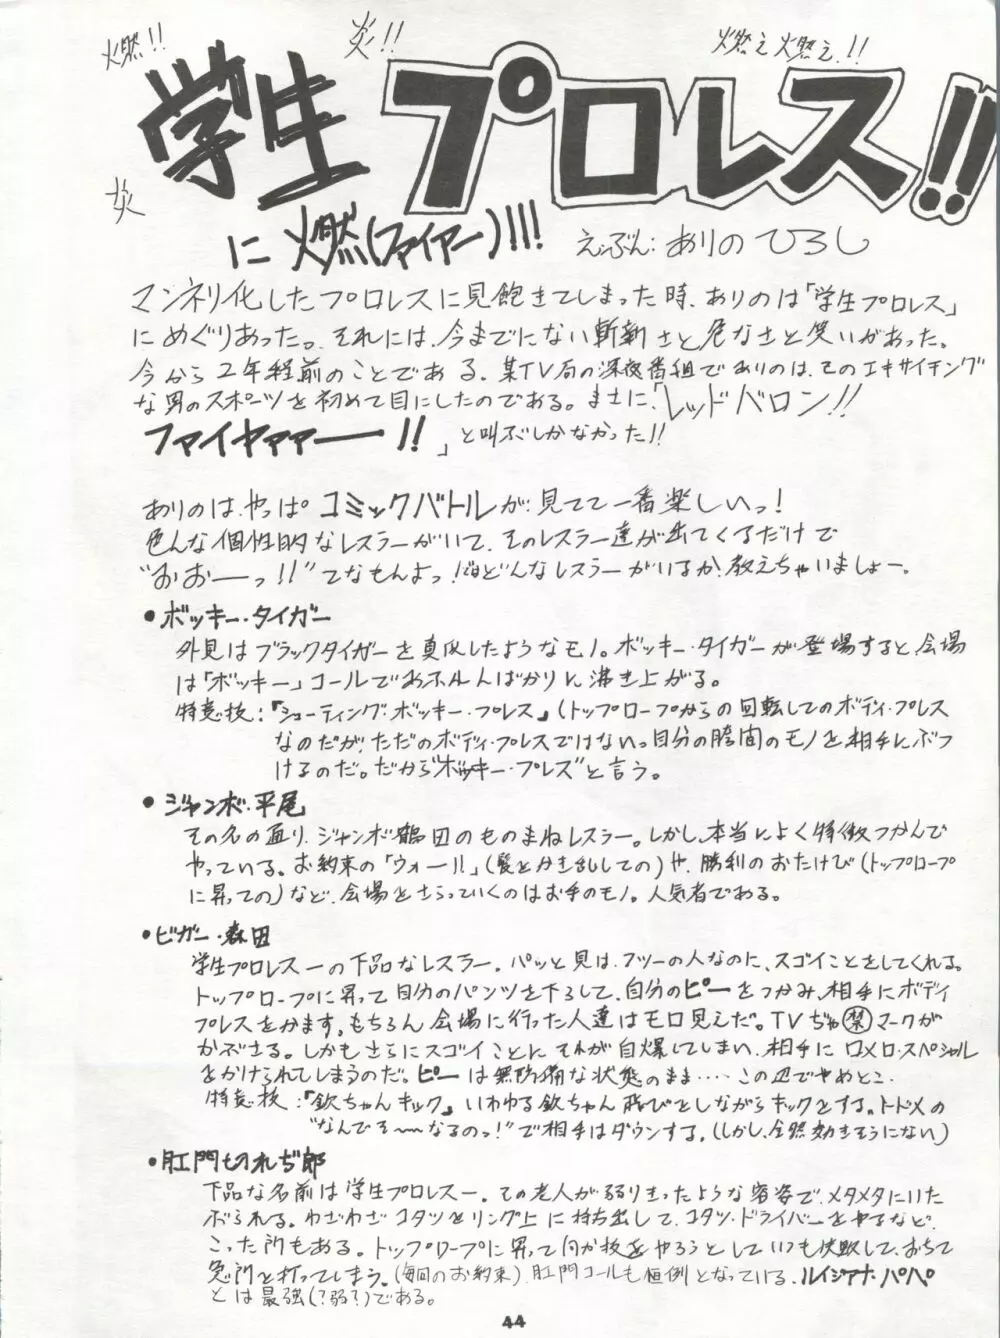 燃!!
炎!!
燃え燃え!!
学生プロレス!!
炎
に燃(ファイアー)!!!
えぶん:ありのひろし
マンネリ化したプロレスに見飽きてしまった時、ありのは「学生プロレス」
にめぐりあった。それには、今までにない斬新さと危なさと笑いがあった。
今から2年程前のことである。某TV局の深夜番組でありのは、そのエキサイチング
な男のスポーツを初めて目にしたのである。まさに、「レッドバロン!!
ファイヤァァーー!!」と叫ぶしかなかった!!
ありのは、やっぱコミックバトルが見てて一番楽しいっ!
色んな個性的なレスラーがいて、そのレスラー達が出てくるだけで
“おおーっ!!”てなもんよっ!ほどんなレスラーがいるか、教えちゃいましょー。
•ボッキー・タイガー
外見はブラックタイガーを真似したようなモノ。ボッキー・タイガーが登場すると、会場
は「ボッキー」コールであふれんばかりに沸き上がる。
特意技:『シューティング・ボッキー・プレス』(トップロープからの回転してのボディ・プレス
なのだが、ただのボディ・プレスではないっ自分の股間のモノを相手にぶつ
けるのだ。だから“ボッキー・プレス”と言う。
•ジャンボ・平尾
その名の通り、ジャンボ鶴田のものまねレスラー。しかし、本当によく特徴つかんで
やっている。お約束の「ウォー!!」(髪をかき乱しての)や、勝利のおたけび(トップロープ
に昇っての)など、会場をさらっていくのはお手のモノ。人気者である。
•ビガー・森田
学生プロレス一の下品なレスラー。パッと見は、フツーの人なのに、スゴイことをしてくれる。
トップロープに昇って自分のパンツを下ろして、自分のピーをつかみ、相手にボディ
プレスをかます。もちろん会場に行った人達はモロ見えだ。TVぢゃ㊙マークが
かぶさる。しかもさらにスゴイことにそれが自爆してしまい、相手にロメロ・スペシャル
をかけられてしまうのだ。ピーは無防備な状態のまま‥‥この辺でやめとこ。
特意技:『欽ちゃんキック』いわゆる欽ちゃん飛びをしながらキックをする。トドメの
“なんでそ〜なるのっ!”で相手はダウンする。(しかし、全然効きそうにない)
•肛門切れぢ郎
下品な名前は学生プロレス一。その老人が弱りきったような容姿で、メタメタにいた
ぶられる。わざわざコタツをリング上に持ち出して、コタツ・ドライバーをやるなど、
こった所もある。トップロープに昇って何か技をやろうとしていつも失敗して、おちて
急所を打ってしまう。(毎回のお約束)肛門コールも恒例となっている。ルイジアナ・パペ
とは最強(?弱?)である。
44